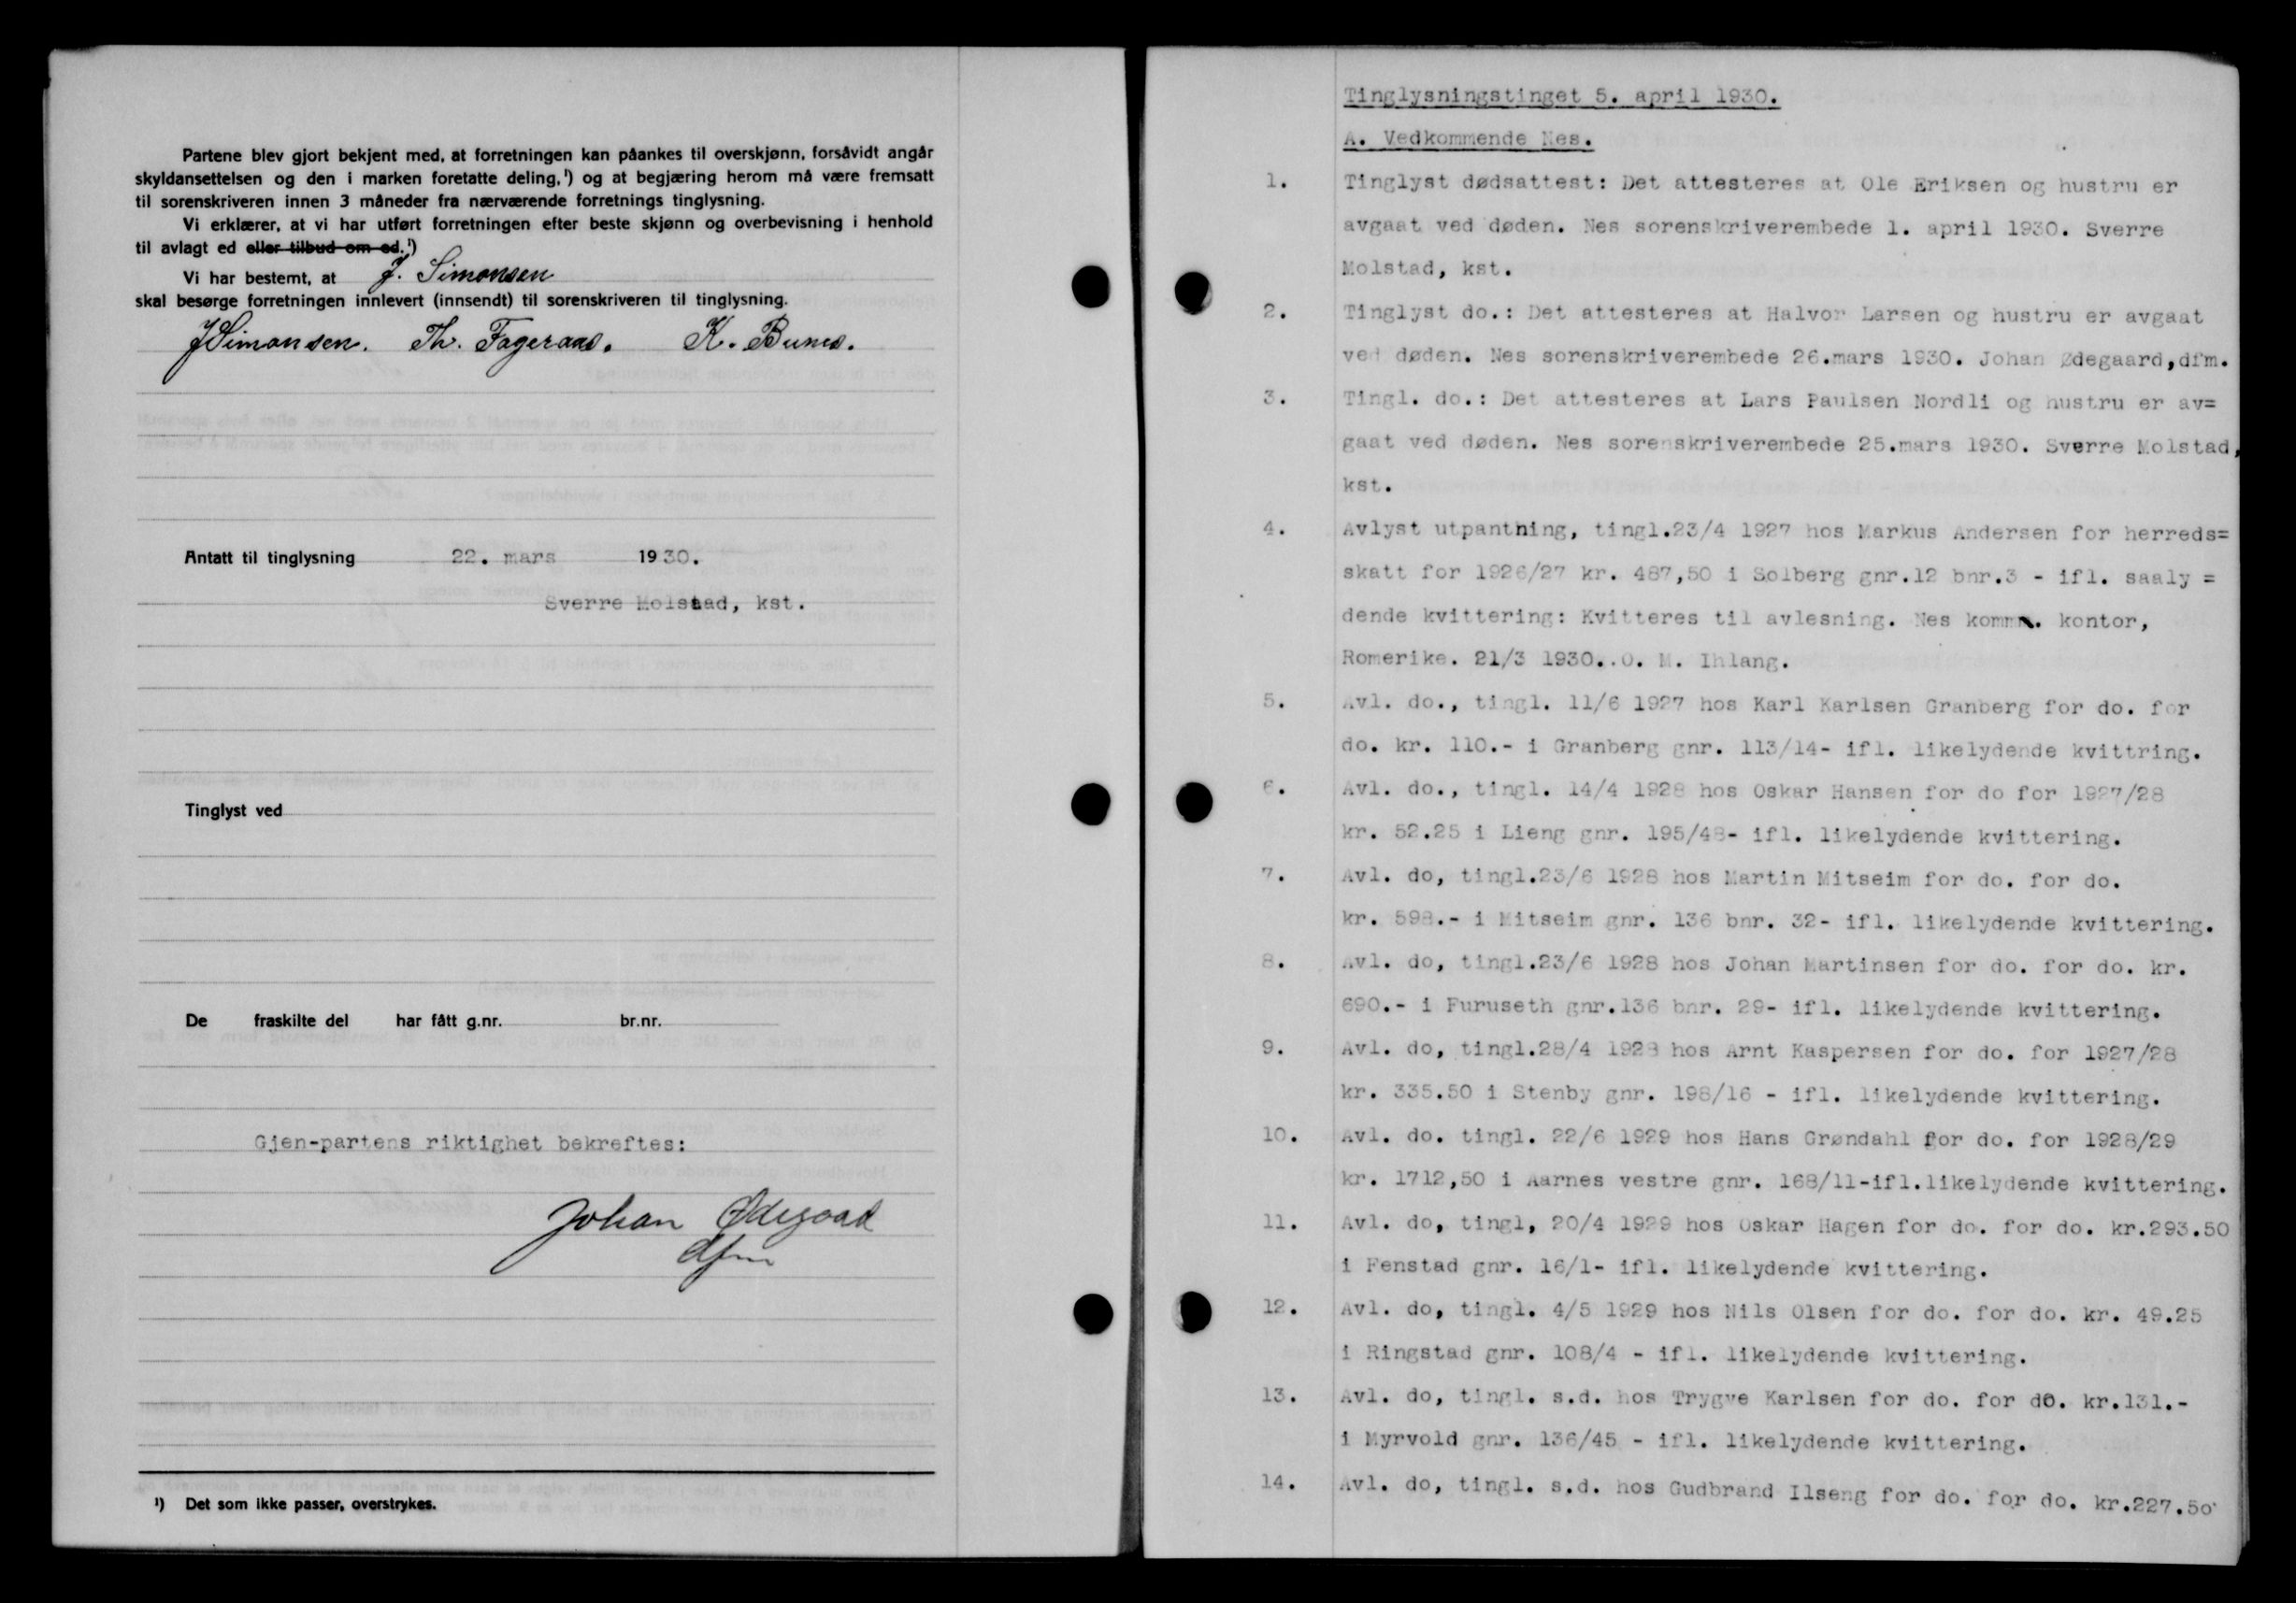 Partene blev gjort bekjent med, at forretningen kan påankes til overskjønn, forsåvidt angår
skyldansettelsen og den i marken foretatte deling,¹) og at begjæring herom må være fremsatt
til sorenskriveren innen 3 måneder fra nærværende forretnings tinglysning.
Vi erklærer, at vi har utført forretningen efter beste skjønn og overbevisning i henhold
til avlagt ed eller tilbud om ed.¹)
Vi har bestemt, at J. Simonsen
skal besørge forretningen innlevert (innsendt) til sorenskriveren til tinglysning.
J Simonsen. Th. Fageraas. K. Bunes.
Antatt til tinglysning 22. mars 1930.
Sverre Molstad, kst.
Tinglyst ved
De fraskilte del har fått g.nr. br.nr.
Gjen-partens riktighet bekreftes:
Johan Ødegaard
dfm
¹) Det som ikke passer, overstrykes.
Tinglysningstinget 5. april 1930.
A. Vedkommende Nes.
1. Tinglyst dødsattest: Det attesteres at Ole Eriksen og hustru er
avgaat ved døden. Nes sorenskriverembede 1. april 1930. Sverre
Molstad, kst.
2. Tinglyst do.: Det attesteres at Halvor Larsen og hustru er avgaat
ved døden. Nes sorenskriverembede 26.mars 1930. Johan Ødegaard,dfm.
3. Tingl. do.: Det attesteres at Lars Paulsen Nordli og hustru er av=
gaat ved døden. Nes sorenskriverembede 25.mars 1930. Sverre Molstad,
kst.
4. Avlyst utpantning, tingl.23/4 1927 hos Markus Andersen for herreds=
skatt for 1926/27 kr. 487,50 i Solberg gnr.12 bnr.3 - ifl. saaly =
dende kvittering: Kvitteres til avlesning. Nes komm. kontor,
Romerike. 21/3 1930..O. M. Ihlang.
5. Avl. do., tingl. 11/6 1927 hos Karl Karlsen Granberg for do. for
do. kr. 110.- i Granberg gnr. 113/14- ifl. likelydende kvittring.
6. Avl. do., tingl. 14/4 1928 hos Oskar Hansen for do for 1927/28
kr. 52.25 i Lieng gnr. 195/48- ifl. likelydende kvittering.
7. Avl. do, tingl.23/6 1928 hos Martin Mitseim for do. for do.
kr. 598.- i Mitseim gnr. 136 bnr. 32- ifl. likelydende kvittering.
8. Avl. do, tingl.23/6 1928 hos Johan Martinsen for do. for do. kr.
690.- i Furuseth gnr.136 bnr. 29- ifl. likelydende kvittering.
9. Avl. do, tingl.28/4 1928 hos Arnt Kaspersen for do. for 1927/28
kr. 335.50 i Stenby gnr. 198/16 - ifl. likelydende kvittering.
10. Avl. do. tingl. 22/6 1929 hos Hans Grøndahl for do. for 1928/29
kr. 1712,50 i Aarnes vestre gnr. 168/11-ifl.likelydende kvittering.
11. Avl. do, tingl, 20/4 1929 hos Oskar Hagen for do. for do. kr.293.50
i Fenstad gnr. 16/1- ifl. likelydende kvittering.
12. Avl. do, tingl. 4/5 1929 hos Nils Olsen for do. for do. kr. 49.25
i Ringstad gnr. 108/4 - ifl. likelydende kvittering.
13. Avl. do, tingl. s.d. hos Trygve Karlsen for do. for do. kr.131.-
i Myrvold gnr. 136/45 - ifl. likelydende kvittering.
14. Avl. do, tingl. s.d. hos Gudbrand Ilseng for do. for do. kr.227.50